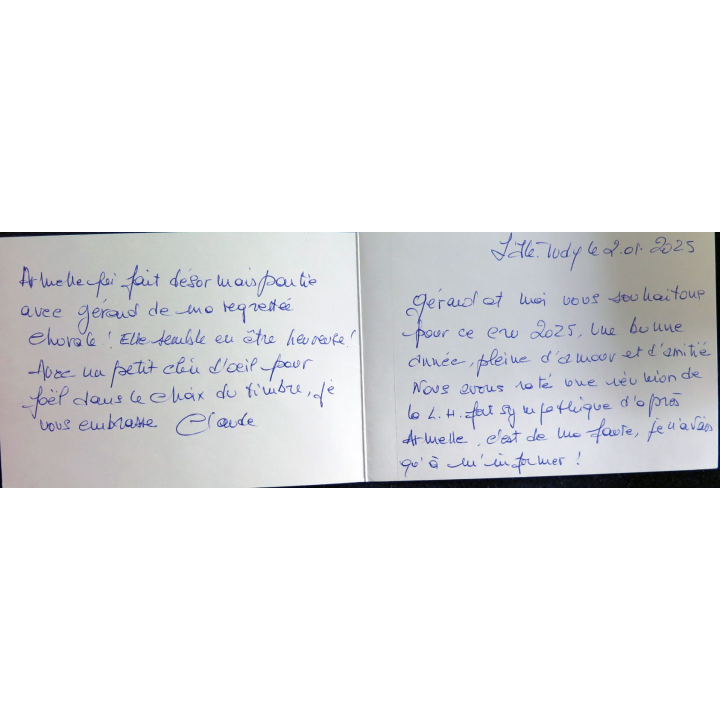 le 2.01.2025
Gérard et moi vous souhaitons
pour ce cru 2025. Une bonne
année, pleine d'amour et d'amitié
Nous avons raté une réunion de
la L.H. fort sympathique d'après
Armelle, c'est de ma faute, je n'avais
qu'à m'informer !
Armelle qui fait désormais partie
avec Gérard de ma regrettée
chorale ! Elle semble en être heureuse !
Avec un petit clin d'œil pour
Joël dans le choix du timbre, je
vous embrasse Claude